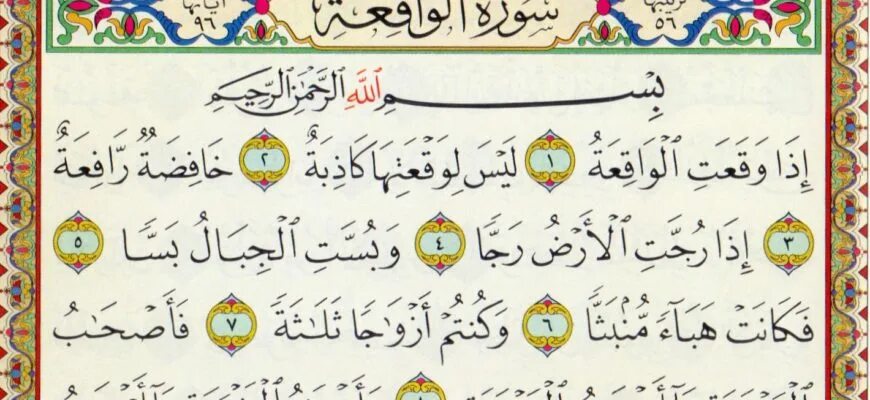 ترتيبها ٥٦ سُورَةُ الواقِعَةِ آياتها ٩٦
بِسْمِ ٱللَّهِ ٱلرَّحْمَٰنِ ٱلرَّحِيمِ
إِذَا وَقَعَتِ ٱلْوَاقِعَةُ ١ لَيْسَ لِوَقْعَتِهَا كَاذِبَةٌ ٢ خَافِضَةٌ رَّافِعَةٌ
٣ إِذَا رُجَّتِ ٱلْأَرْضُ رَجًّا ٤ وَبُسَّتِ ٱلْجِبَالُ بَسًّا ٥
فَكَانَتْ هَبَآءً مُّنۢبَثًّا ٦ وَكُنتُمْ أَزْوَٰجًا ثَلَٰثَةً ٧ فَأَصْحَٰبُ